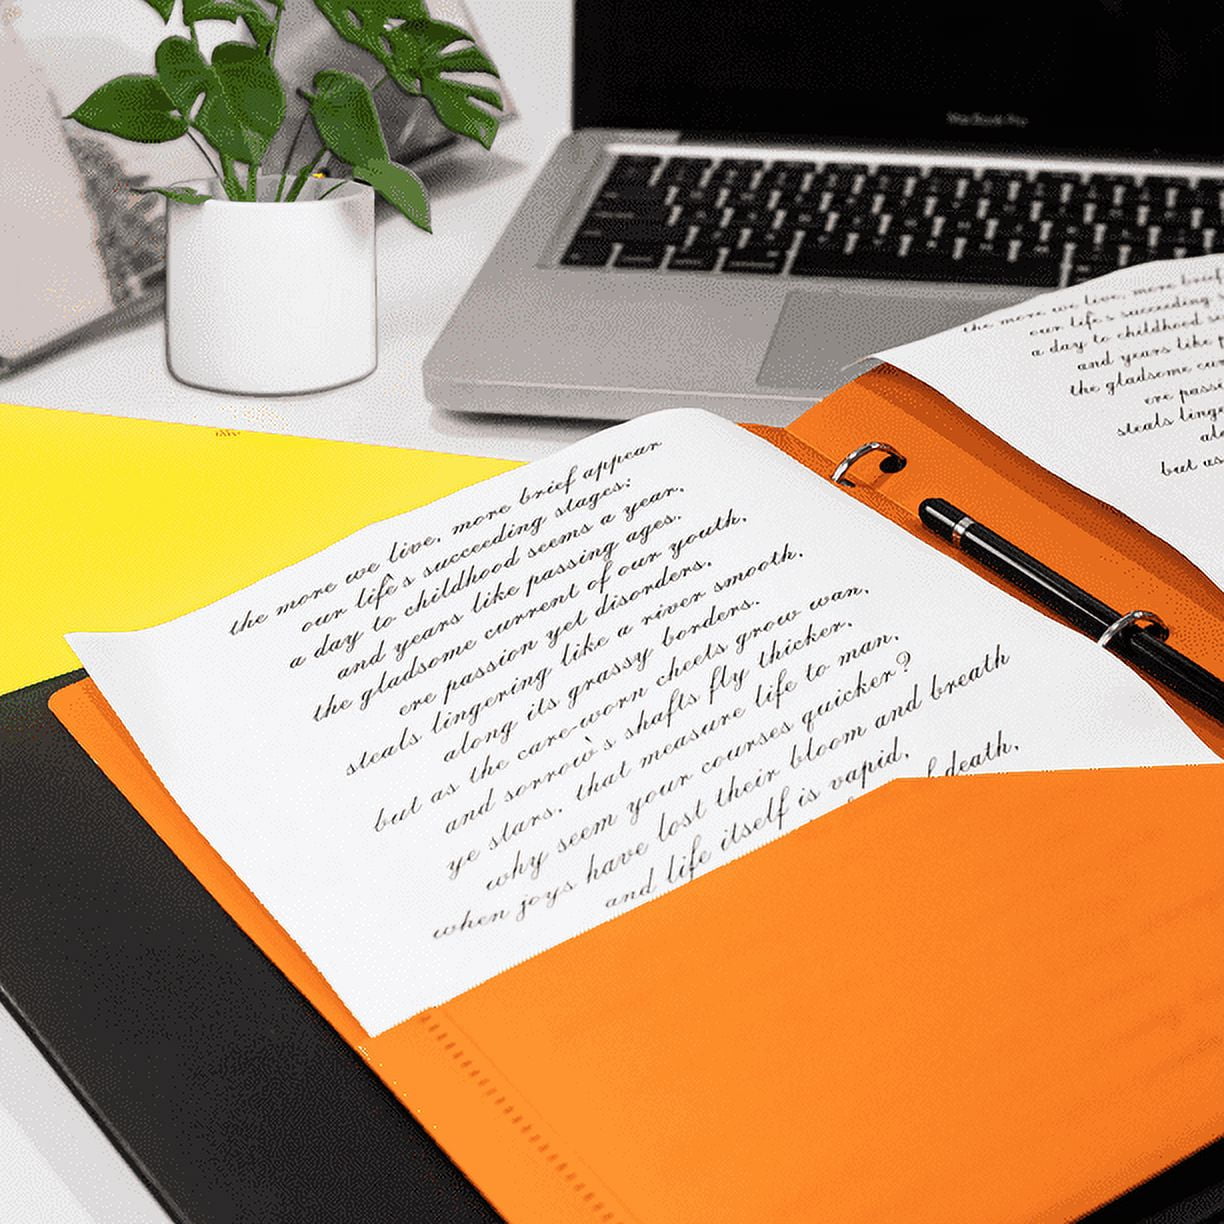 MacBook Pro
the more we live, more brief appear
our life's succeeding stages:
a day to childhood seems a year,
and years like passing ages.
the gladsome current of our youth,
ere passion yet disorders,
steals lingering like a river smooth,
along its grassy borders.
but as the care-worn cheeks grow wan,
and sorrow's shafts fly thicker,
ye stars, that measure life to man,
why seem your courses quicker?
when joys have lost their bloom and breath
and life itself is vapid,
death,
the more we live, more brief
our life's succeeding
a day to childhood
and years like
the gladsome
ere
steals
but as